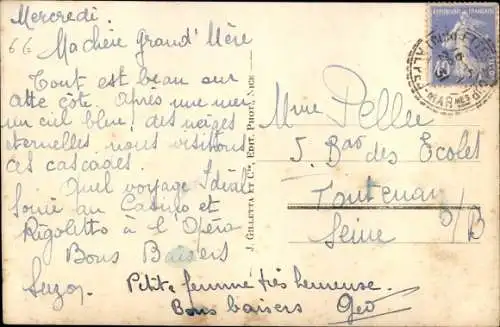 Mercredi.
66 Ma chère Grand'Mère
Tout est beau sur
cette côte. Après une mer
un ciel bleu, des neiges
éternelles, nous visitons
ces cascades.
Quel voyage Idéal
Soirée au Casino et
Rigoletto à l'Opéra
Bons Baisers
Suzon.
Petite femme très heureuse.
Bons baisers Geo
J. GILLETTA ET Cie, EDIT. PHOT. NICE
Mme Pellee
5 Bas des Ecoles
Fontenay
s/B
Seine